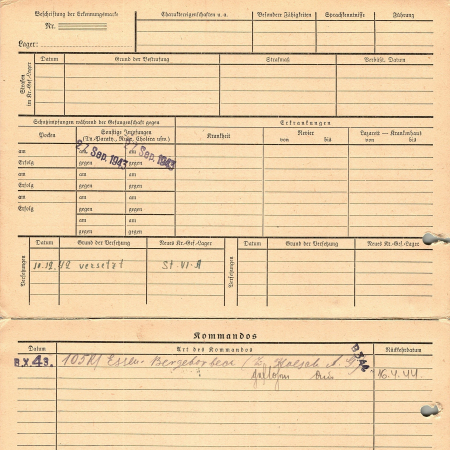 Beschriftung der Erkennungsmarke
Nr.
Lager:
Charaktereigenschaften u. a.
Besondere Fähigkeiten
Sprachkenntnisse
Führung
Strafen im Kr.-Gef.-Lager
Datum
Grund der Bestrafung
Strafmaß
Verbüßt, Datum
Schutzimpfungen während der Gefangenschaft gegen
Erkrankungen
Pocken
Sonstige Impfungen
(Ty.-Parath., Ruhr, Cholera usw.)
Krankheit
Revier
von bis
Lazarett — Krankenhaus
von bis
am am am
27. Sep. 1943 27. Sep. 1943
Erfolg gegen gegen
am am am
Erfolg gegen gegen
am am am
Erfolg gegen gegen
am am
gegen gegen
am am
gegen gegen
Versetzungen
Datum
Grund der Versetzung
Neues Kr.-Gef.-Lager
Versetzungen
Datum
Grund der Versetzung
Neues Kr.-Gef.-Lager
10.12.42 versetzt St. VI. A
Kommandos
Datum
Art des Kommandos
Rückkehrdatum
8.X.43. 105 Essen-
16.4.44.